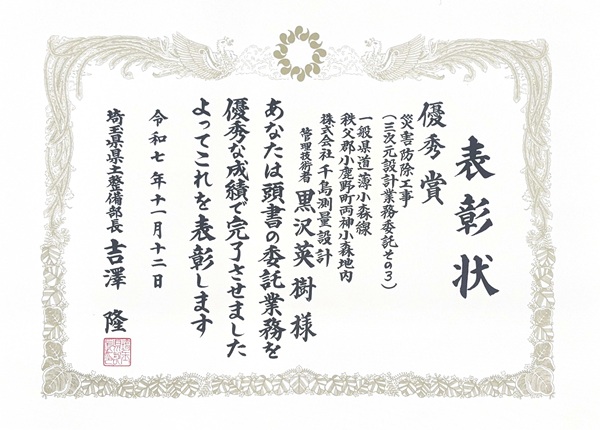 表彰状
優秀賞
災害防除工事
(三次元設計業務委託その3)
一般県道薄小森線
秩父郡小鹿野町両神小森地内
株式会社千島測量設計
管理技術者 黒沢英樹様
あなたは頭書の委託業務を
優秀な成績で完了させました
よってこれを表彰します
令和七年十一月十二日
埼玉県県土整備部長 吉澤隆